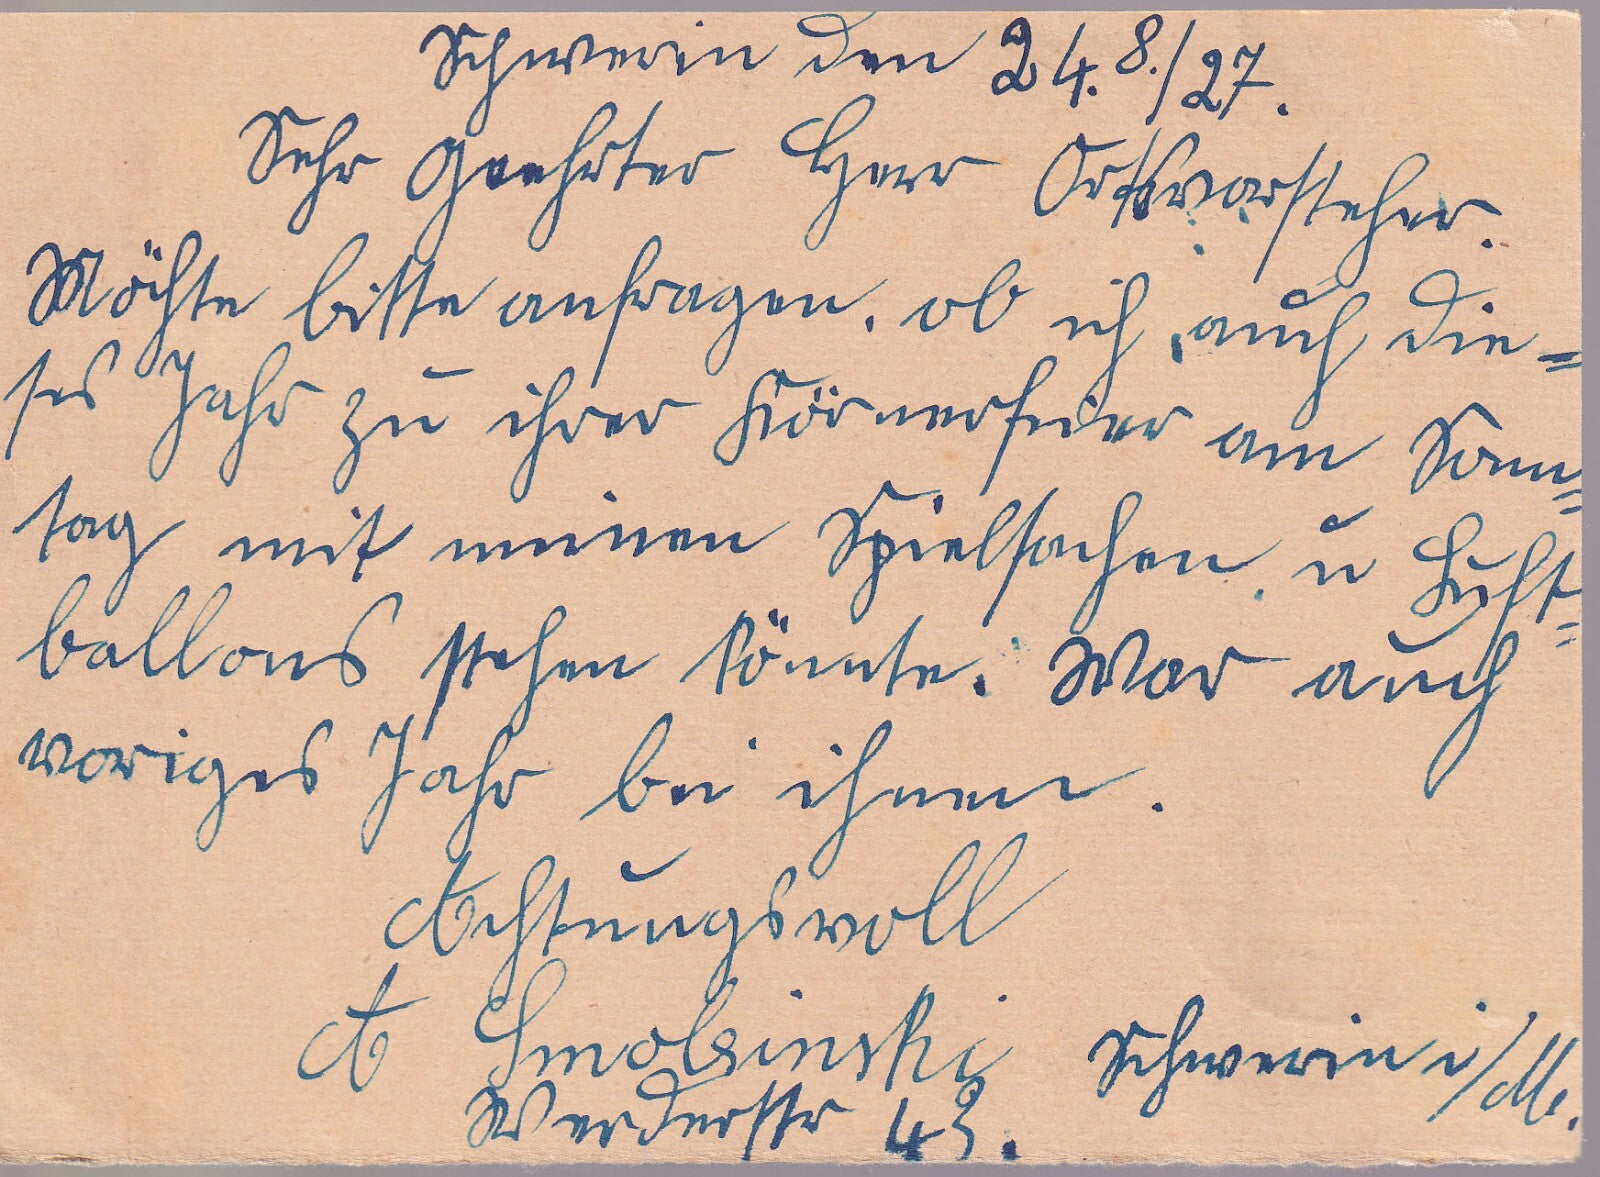 Schwerin den 24.8./27.
Sehr geehrter Herr Ortsvorsteher.
Möchte bitte anfragen. ob ich auch die=
ses Jahr zu ihrer Körnerfeier am Sonn=
tag mit meinen Spielsachen u Luft=
ballons stehen könnte. War auch
voriges Jahr bei ihnen.
Achtungsvoll
A Smolsinski Schwerin i/M.
Werderstr 43.